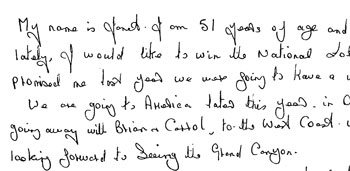 My name is Janet. I am 51 years of age and
lately, I would like to win the National Lot
promised me last year we were going to have a
We are going to America later this year. in
going away with Brian & Carol, to the West Coast.
looking forward to Seeing the Grand Canyon.